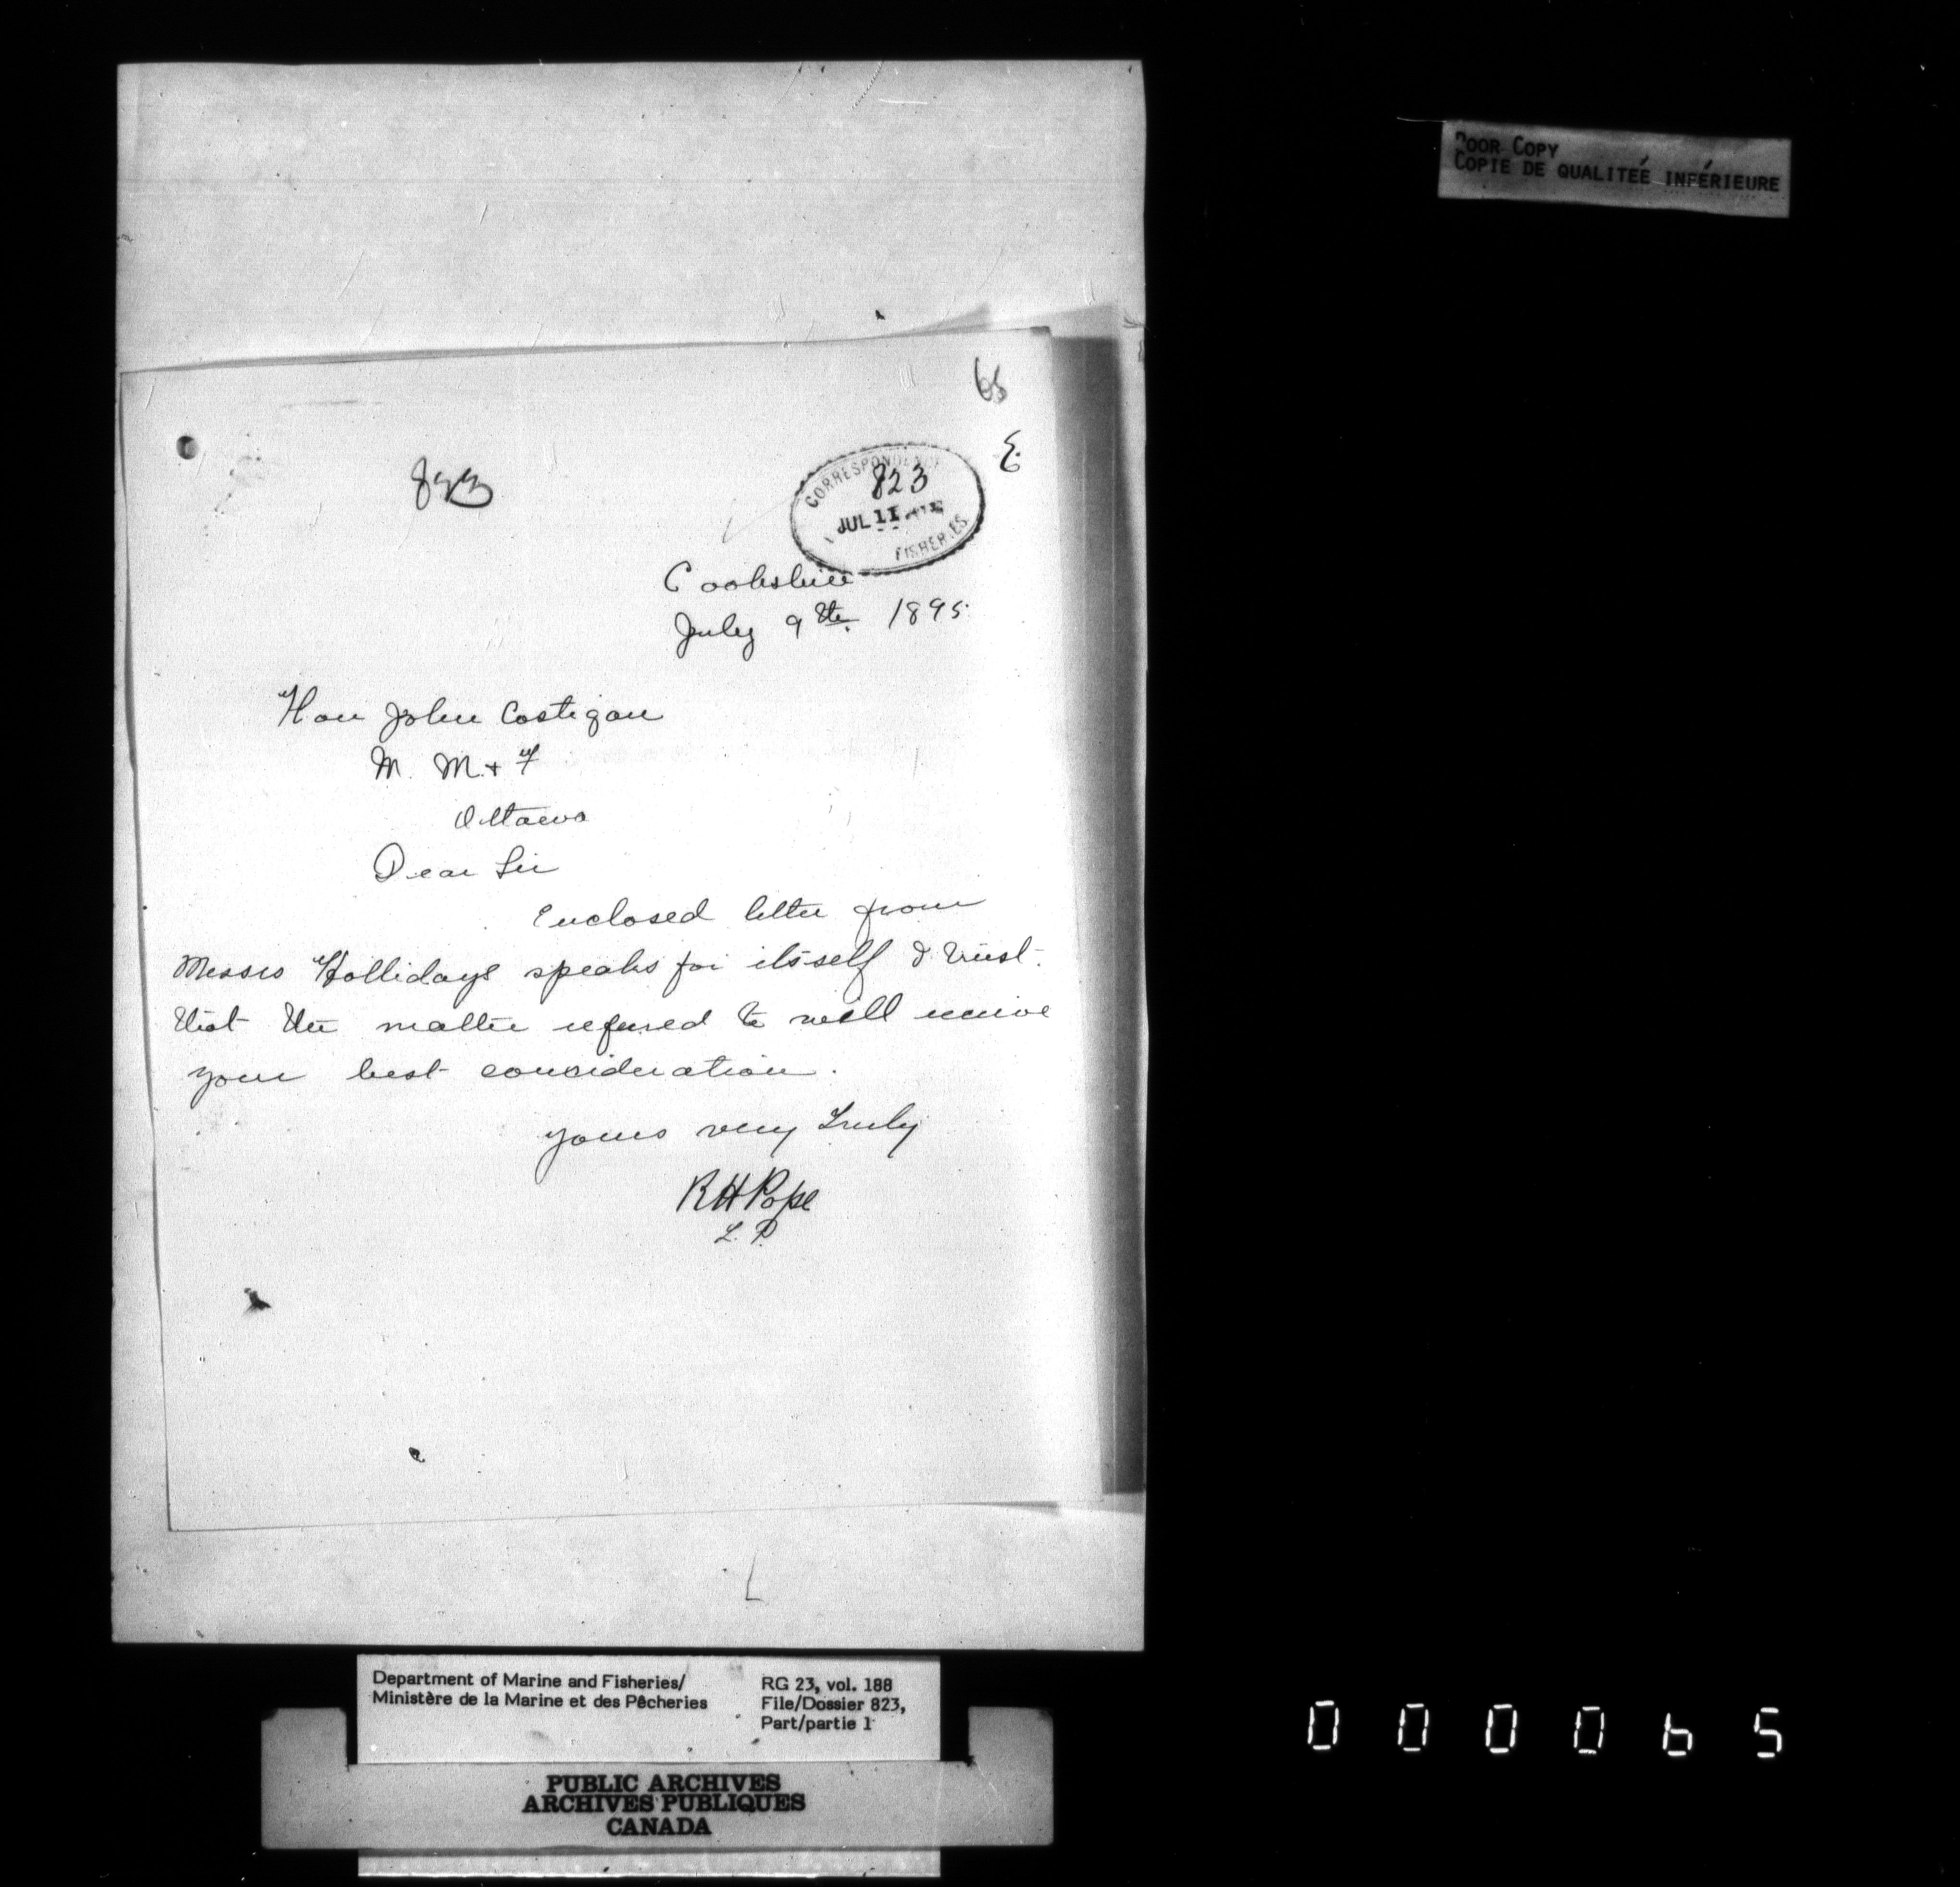 POOR COPY
COPIE DE QUALITEÉ INFÉRIEURE
65
E.
823
CORRESPONDENCE
823
JUL 11
FISHERIES
Cookshire
July 9th. 1895.
Hon John Costigan
M. M. & F
Ottawa
Dear Sir
Enclosed letter from
Messrs Hollidays speaks for itsself & trust.
that the matter refered to will receive
your best consideration.
yours very Truly
RH Pope
L. P.
Department of Marine and Fisheries/
Ministère de la Marine et des Pêcheries
RG 23, vol. 188
File/Dossier 823,
Part/partie 1
PUBLIC ARCHIVES
ARCHIVES PUBLIQUES
CANADA
000065